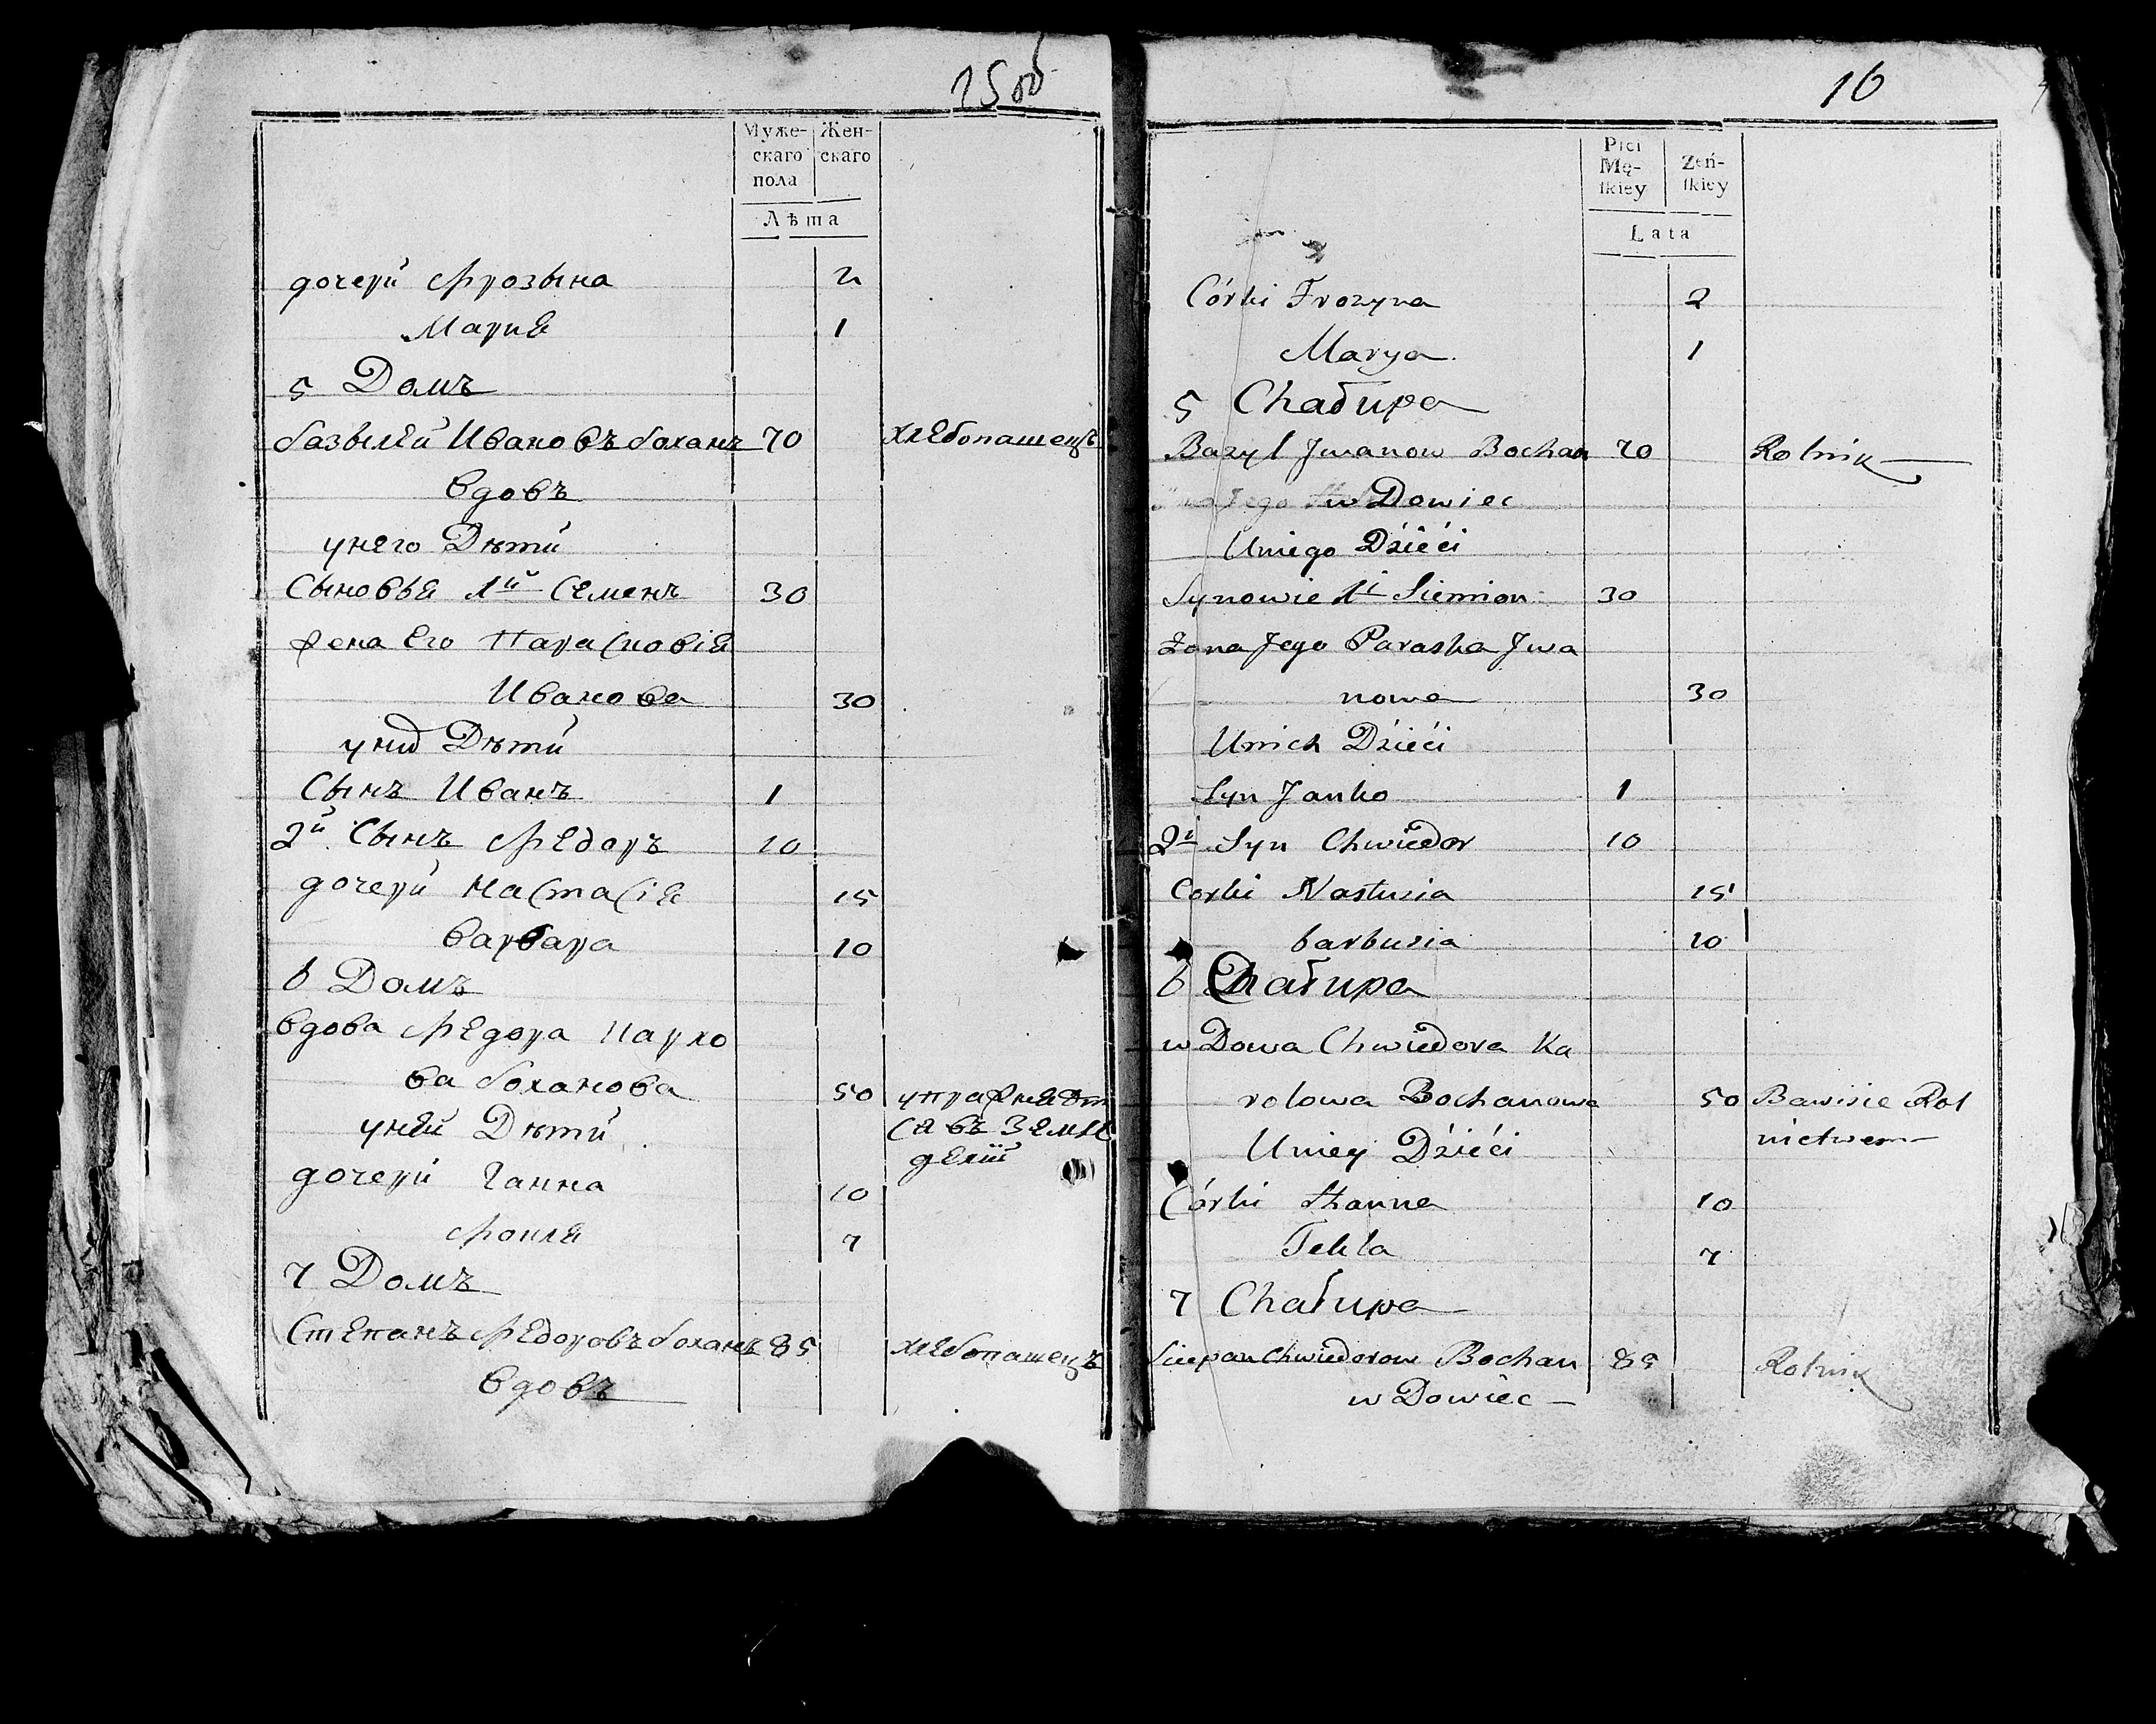 15об
Муже-
скаго
пола
Жен-
скаго
Лѣта
дочери Фрозына 2
Марие 1
5 Домъ
базылей Ивановъ боханъ 70 хлебопашецъ
вдовъ
унего Дѣти
Сыновья 1й Семенъ 30
жена Его Парасковiя
Иванова 30
уних Дѣти
Сынъ Иванъ 1
2й Сынъ Федоръ 10
дочери Настасiя 15
варвара 10
6 Домъ
вдова Федора Карло
ва боханова 50 упражняет
уней Дѣти ся въ Земле
делiи
дочери Ганна 10
7
7 Домъ
Степанъ Федоровъ боханъ 85 хлебопашецъ
вдовъ
16
Płci
Mę-
ſkiey
Zeń-
ſkiey
Lata
Córki Frozyna 2
Marya 1
5 Chałupa
Bazyl Jwanow Bochan 70 Rolnik
w Dowiec
Uniego Dzieći
Synowie 1i Siemion 30
Żona Jego Paraska Jwa
nowa 30
Unich Dzieći
Syn Janko 1
2i Syn Chwiedor 10
Corki Nastusia 15
barbusia 10
6 Chałupa
w Dowa Chwiedora Ka
rolowa Bochanowa 50 Bawisie Rol
Uniey Dzieći nictwem
Córki Hanna 10
Tekla 7
7 Chałupa
Sciepan Chwiedorow Bochan 85 Rolnik
w Dowiec